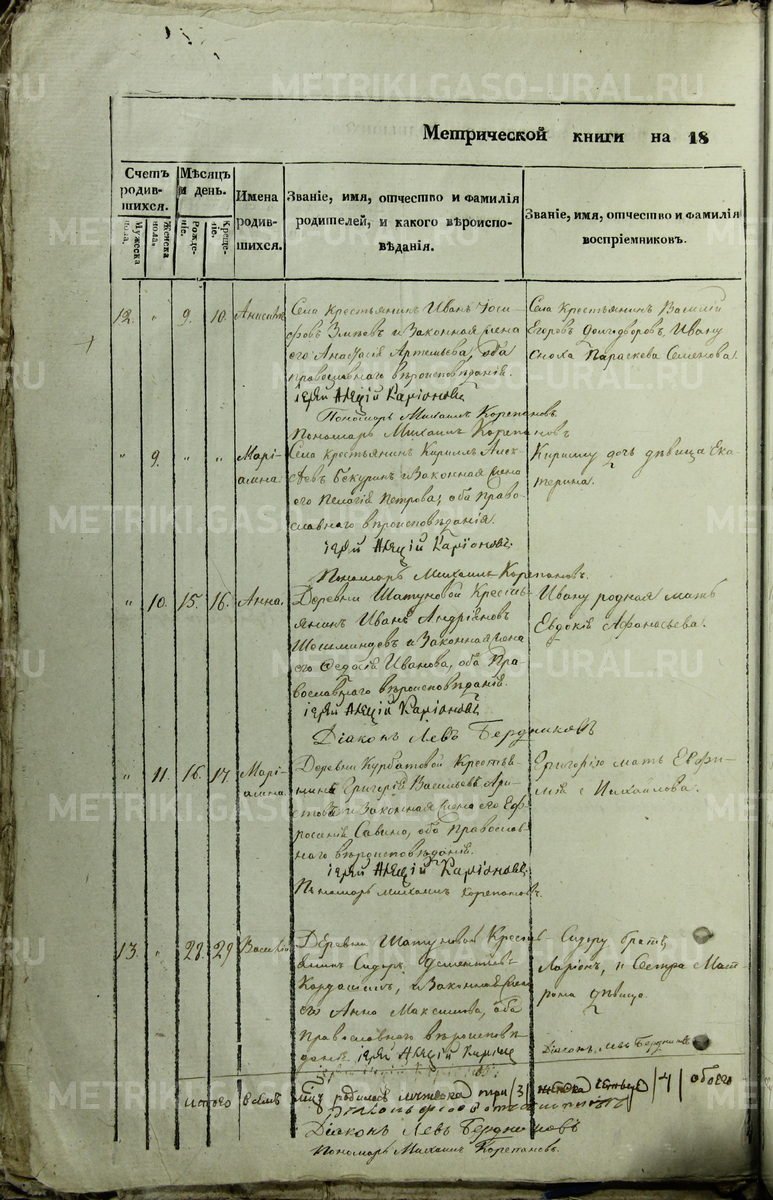 Метрической книги на 18
Счетъ родившихся.
Мѣсяцъ и день.
Имена родившихся.
Званіе, имя, отчество и фамилія родителей, и какого вѣроисповѣданія.
Званіе, имя, отчество и фамилія воспріемниковъ.
Мужеска пола.
Женска пола.
Рожденіе.
Крещеніе.
12. " 9. 10.
Села крестьянинъ Иванъ Іоси-
фовъ и законная жена
его Анастасія Артемьева, оба
православнаго вѣроисповѣданія.
іерей Алеѯій Каріоновъ
Пономарь Михаилъ Корепановъ.
Села крестьянинъ Василій
Егоровъ Долгодворовъ, Ивану
сноха Параскева Семенова.
Пономарь Михаилъ Корепановъ
" 9. " "
Марі-
амна.
Села крестьянинъ Кириллъ Алек-
сѣевъ и законная жена
его Пелагія Петрова, оба право-
славнаго вѣроисповѣданія.
іерей Алеѯій Каріоновъ.
Пономарь Михаилъ Корепановъ.
Кириллу дочь дѣвица Ека-
терина.
" 10. 15. 16. Анна.
Деревни Шатуновой кресть-
янинъ Иванъ Андріяновъ
и законная жена
его Ѳедосія Иванова, оба пра-
вославнаго вѣроисповѣданія.
іерей Алеѯій Каріоновъ
Діаконъ Левъ Бердниковъ
Ивану родная мать
Евдокія Афанасьева.
" 11. 16. 17.
Марі-
амна.
Деревни Курбатовой крестья-
нинъ Григорій Васильевъ
и законная жена его Еф-
росинія Савина, оба православ-
наго вѣроисповѣданія.
іерей Алеѯій Каріоновъ.
Пономарь Михаилъ Корепановъ.
Григорію мать Евфи-
мія Михайлова.
13. " 28. 29
Деревни Шатуновой кресть-
янинъ Сидоръ Дементьевъ
и законная жена
его Анна Максимова, оба
православнаго вѣроисповѣ-
данія. іерей Алеѯій Каріоно
Сидору братъ
Ларіонъ, и сестра Мат-
рона дѣвица.
Діаконъ Левъ Бердниковъ
итого родилось мужеска три /3/ женска четыре /4/ обоего
Діаконъ Левъ Бердниковъ
Пономарь Михаилъ Корепановъ.
METRIKI.GASO-URAL.RU